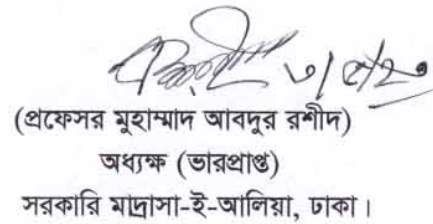 (প্রফেসর মুহাম্মাদ আবদুর রশীদ)
অধ্যক্ষ (ভারপ্রাপ্ত)
সরকারি মাদ্রাসা-ই-আলিয়া, ঢাকা।